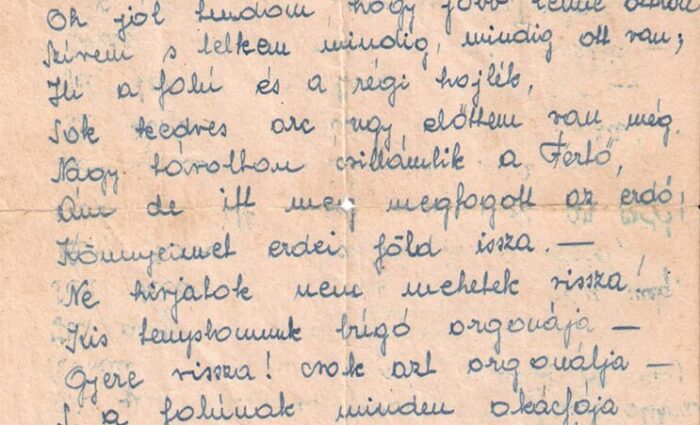 Oh jól tudom, hogy jobb lenne otthon
Szívem s lelkem mindig, mindig ott van;
Hí a falú és a régi hajlék,
Sok kedves arc úgy előttem van még.
Nagy távolban csillámlik a Fertő,
Ám de itt meg megfogott az erdő;
Könnyeimet erdei föld issza. —
Ne hívjatok nem mehetek vissza!
Kis templomunk búgó orgonája —
Gyere vissza! csak azt orgonálja —
S a falúnak minden akácfája